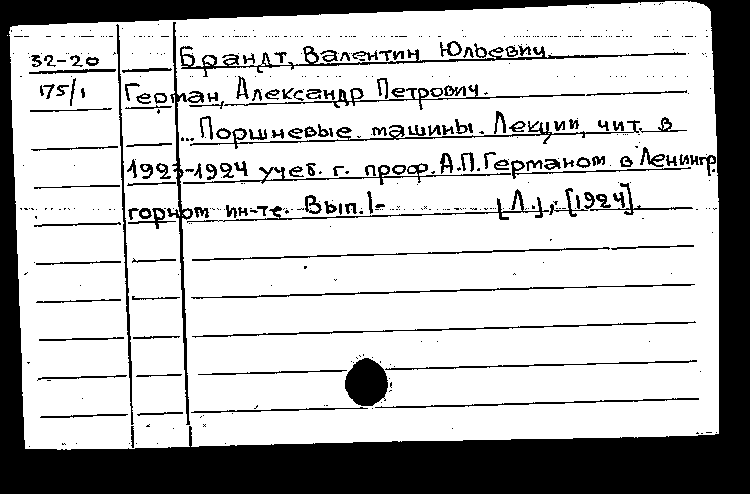 32-20 Брандт, Валентин Юльевич.
175/1 Герман, Александр Петрович.
...Поршневые машины. Лекции, чит. в
1923-1924 учеб. г. проф. А.П. Германом в Ленингр.
горном ин-те. Вып. 1- [Л.], [1924].